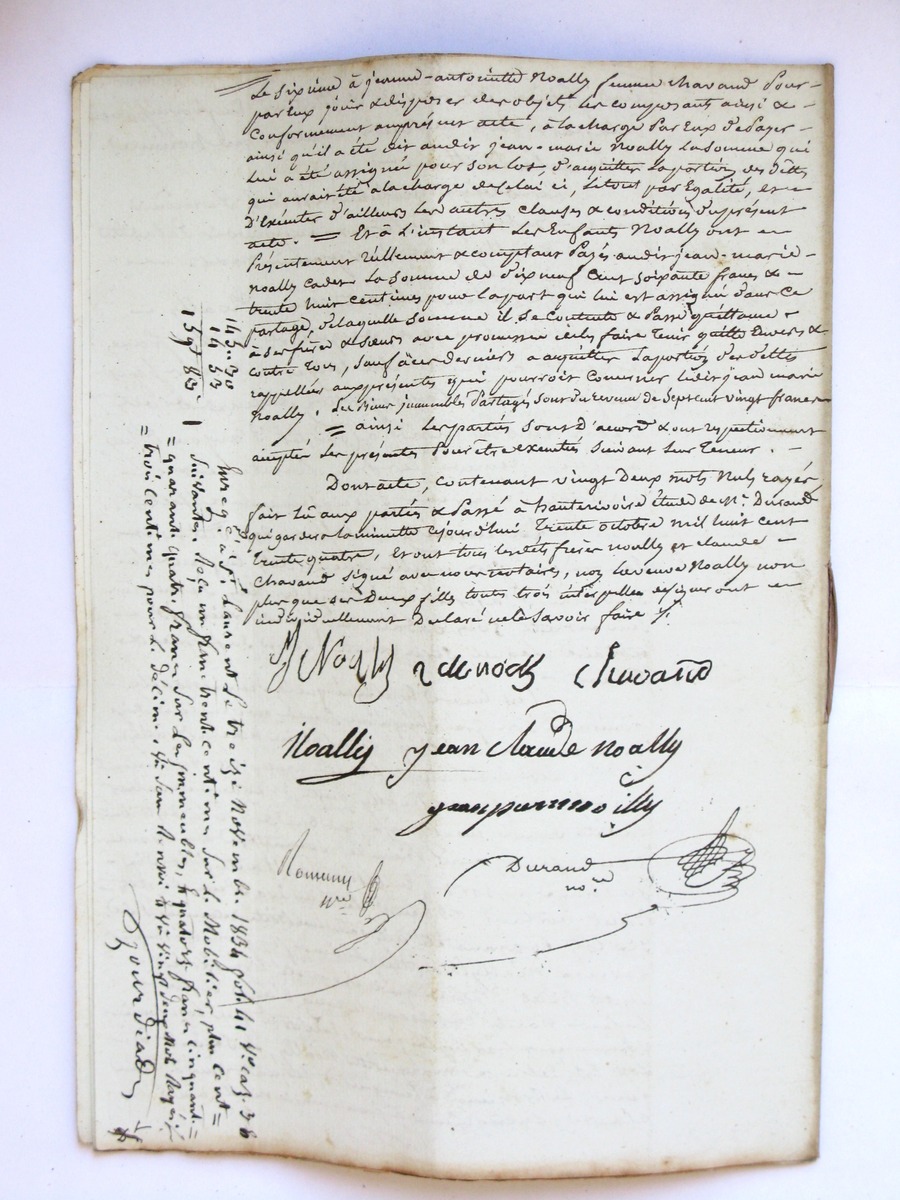 Le sixième à jeanne-antoinette Noally femme chavand Pour
par Eux jouir & disposer des objets les composants ainsi &
Conformement au présent acte, à la charge Par Eux de Payer
ainsi qu'il a été dit audit jean-marie Noally La Somme qui
Lui a été assignée pour son Lot, d'acquitter La portion des dettes
qui aurait été à la charge de celui ci, Le tout par Egalité, et
D'Exécuter d'ailleurs Les autres clauses & conditions du présent
acte. = Et à L'instant Les Enfants Noally ont
Présentement réellement & comptant Payés audit jean-marie
Noally cadet La Somme de Dix neuf Cent soixante francs &
trente huit centimes pour La part qui lui est assignée dans ce
partage, de laquelle somme il se contente & Passe quittance
à ses frères & sœurs avec promesse de les faire tenir quitte Envers &
contre tous, sauf à ces derniers a acquitter La portion des dettes
rappellées aux présentes qui pourroit concerner Ledit jean marie
Noally. Les Biens immeubles Partagés sont du revenu de Sept cent vingt francs
= ainsi Les parties sont D'accord & ont respectivement
accepté Les présentes Pour être executées suivant Leur Teneur.
Dont acte, contenant vingt Deux mots Nuls rayés,
fait Lû aux parties & Passé à hauterivoire étude de Me. Durand
qui gardera La minutte cejourd'hui Trente octobre mil huit cent
Trente quatre, Et ont tous Lesdits frères noally et claude
Chavand signé avec nous notaires, non La veuve Noally non
plus que ses Deux filles toutes trois interpellées de signer ont
individuellement Declaré ne le Savoir faire
Noally chavand
Noally jean claude noally
Durand
nore
145..30
14 53
159f 83c
Enregé à St Laurent Le treize Novembre 1834 fol. 41 Vo cas. 3 &
suivantes Reçu un franc trente centimes sur Le Mobilier, plus cent =
= quarante quatre francs sur Les immeubles, & quatorze francs cinquante =
= trois centimes pour Le Décime